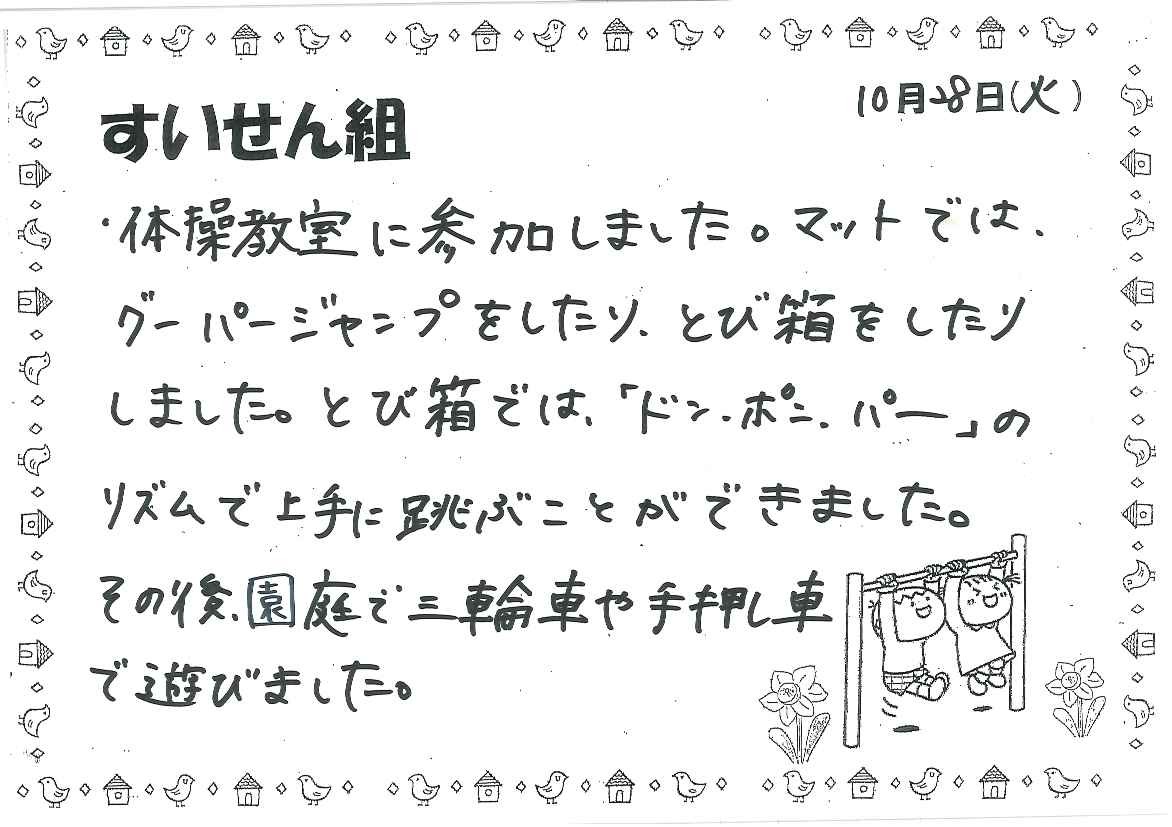 10月28日(火)
すいせん組
・体操教室に参加しました。マットでは、
グーパージャンプをしたり、とび箱をしたり
しました。とび箱では、「ドン・ポン・パー」の
リズムで上手に跳ぶことができました。
その後、園庭で三輪車や手押し車
で遊びました。